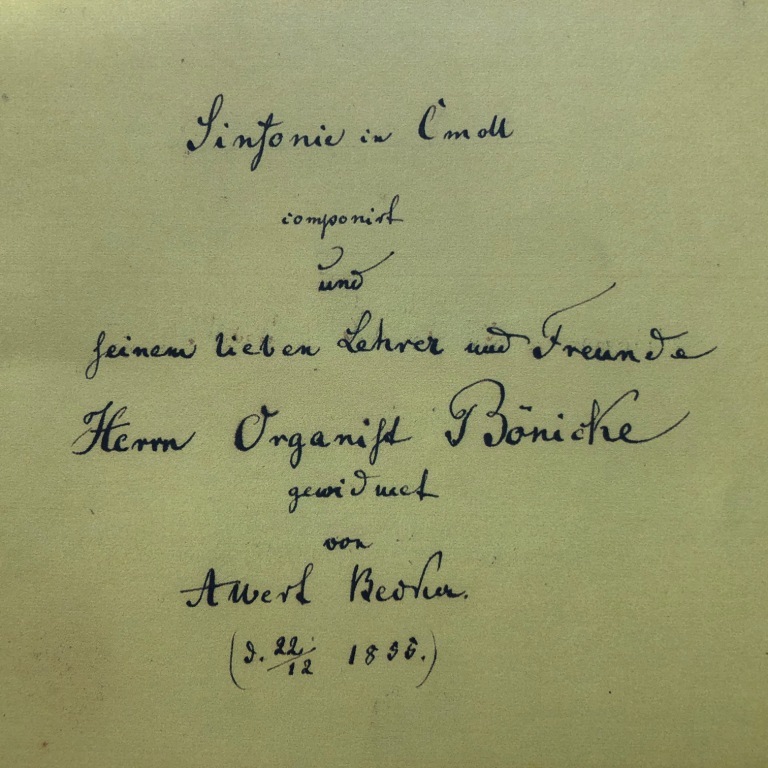 Sinfonie in Cmoll
componirt
und
seinem lieben Lehrer und Freunde
Herrn Organist Bönicke
gewidmet
von
Albert Becker.
(d. 22/12